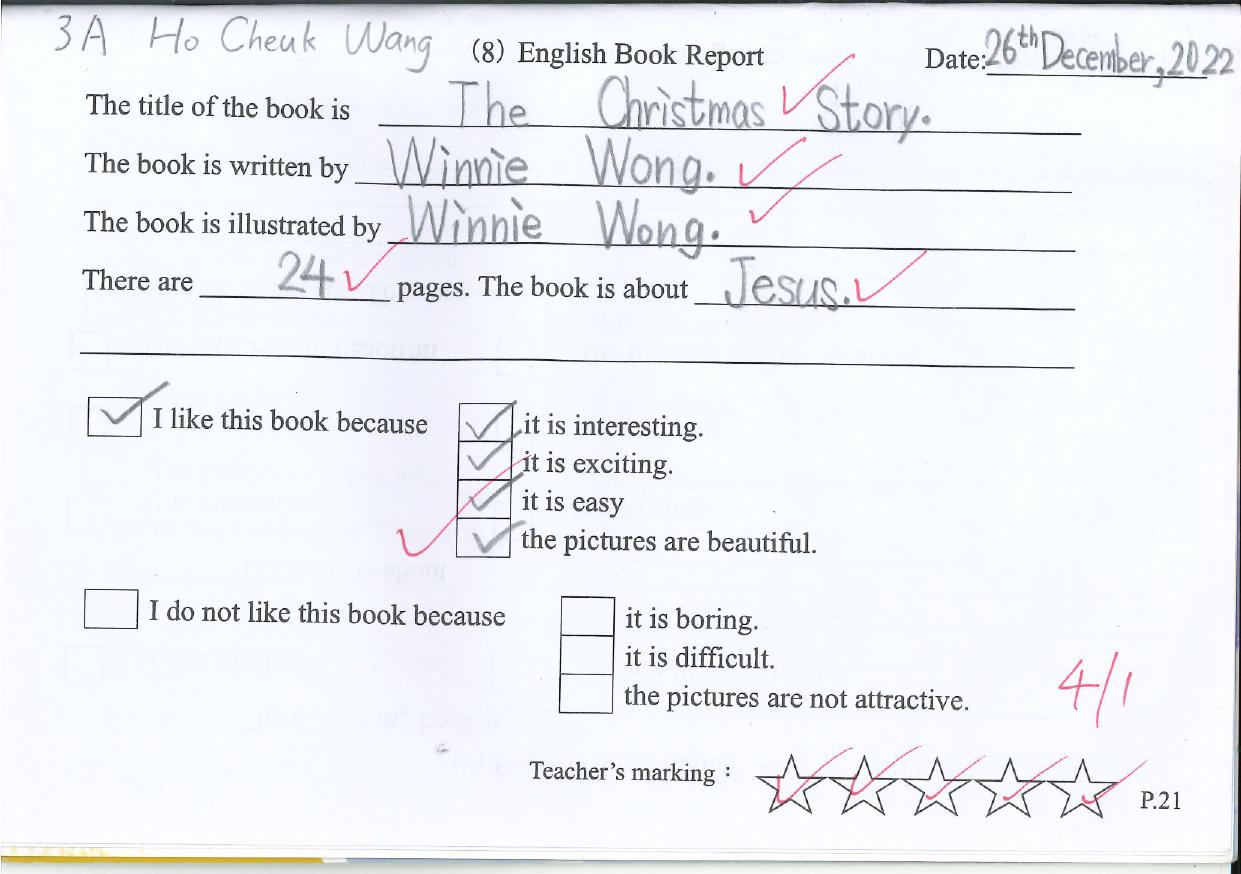 3A Ho Cheuk Wang (8) English Book Report Date: 26th December, 2022
The title of the book is The Christmas Story.
The book is written by Winnie Wong.
The book is illustrated by Winnie Wong.
There are 24 pages. The book is about Jesus.
I like this book because it is interesting.
it is exciting.
it is easy
the pictures are beautiful.
I do not like this book because it is boring.
it is difficult.
the pictures are not attractive.
4/1
Teacher's marking :
P.21